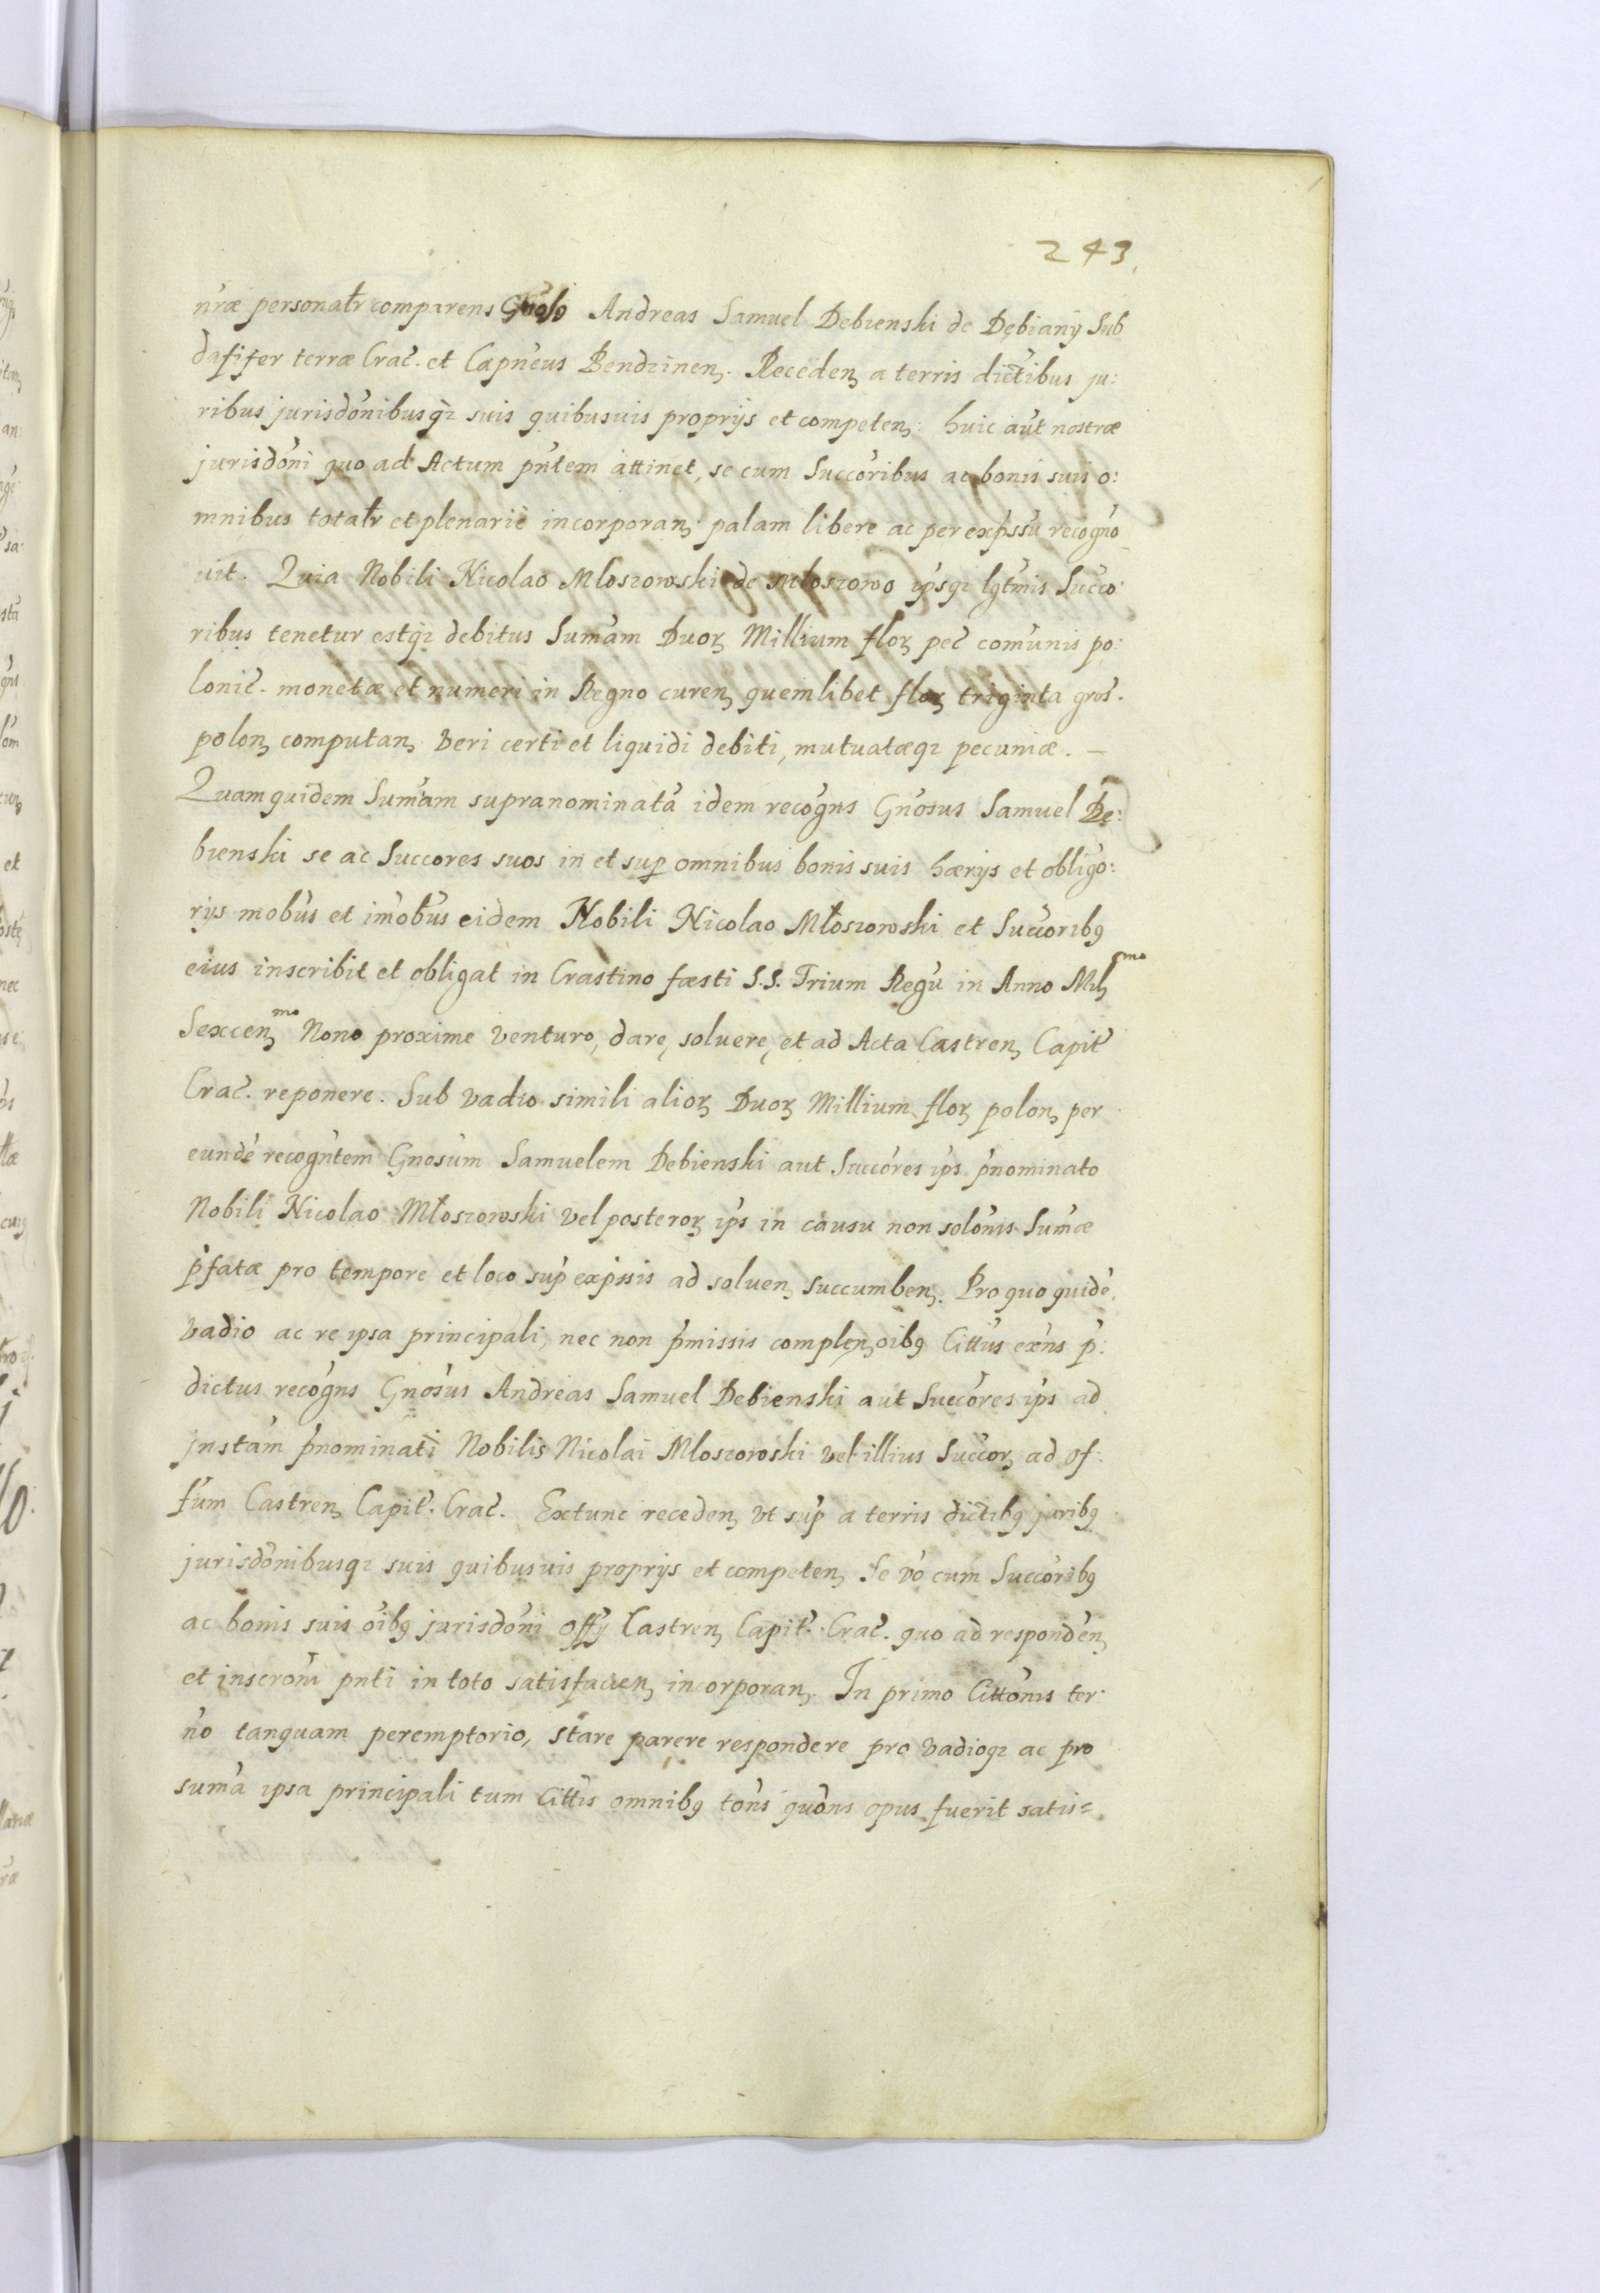 243.
nr̃æ personalr̃ comparens Gnoso Andreas Samuel Debienski de Dębiany Sub
dapifer terræ Crac̃. et Capneus Bendzinen. Receden a terris dictibus ju:
ribus jurisdõnibusqȝ suis quibusuis proprijs et competen: huic aũt nostræ
jurisdõni quo ad Actum pñtem attinet, se cum Succõribus ac bonis suis o:
mnibus totalr̃ et plenarie incorporan, palam libere ac per exp̃ssũ recogno
uit. Quia Nobili Nicolao Mloszowski de Mloszowo ip̃sqȝ lgtmis Succo:
ribus tenetur estqȝ debitus Sum̃am Duoꝝ Millium floꝝ pec̃ com̃unis po:
lonic̃. monetæ et numeri in Regno curen quemlibet floꝝ triginta gros̃.
polon computan veri certi et liquidi debiti, mutuatæqȝ pecuniæ. —
Quamquidem Sum̃am supranominatã idem recogns Gnosus Samuel De:
bienski se ac Succores suos in et sup omnibus bonis suis hærijs et obligo:
rijs mobũs et im̃obũs eidem Nobili Nicolao Młoszowski et Succoribꝯ
eius inscribit et obligat in Crastino fæsti S.S. Trium Regũ in Anno Mil͠smo
Sexcen͠mo Nono proxime venturo, dare, soluere, et ad Acta Castren Capit̃
Crac̃. reponere. Sub vadio simili alioꝝ Duoꝝ Millium floꝝ polon per
eundẽ recogntem Gnosum Samuelem Debienski aut Succores ip̃s p̃nominato
Nobili Nicolao Młoszowski vel posteroꝝ ip̃s in causu non solõnis Sum̃æ
p̃fatæ pro tempore et loco sup̃ exp̃ssis ad soluen succumben. Pro quo quidẽ
vadio ac re ipsa principali, nec non p̃missis complen oibꝯ Cittũs exñs p̃:
dictus recogns Gnosus Andreas Samuel Debienski aut Succores ip̃s ad
jnstam p̃nominati Nobilis Nicolai Mloszowski vel illius Succoꝝ ad of:
fũm Castren Capit̃. Crac̃. Extunc receden vt sup̃ a terris dictibꝯ juribꝯ
jurisdõnibusqȝ suis quibusuis proprijs et competen Se vo cum Succoribꝯ
ac bonis suis oĩbꝯ jurisdõni offij Castren Capit̃. Crac̃. quo ad responden
et inscroni pnti in toto satisfacien incorporan. In primo Cittõnis ter:
no tanquam peremptorio, stare parere respondere pro vadioqȝ ac pro
sum̃a ipsa principali tum Cittis omnibꝯ tons quons opus fuerit satis=